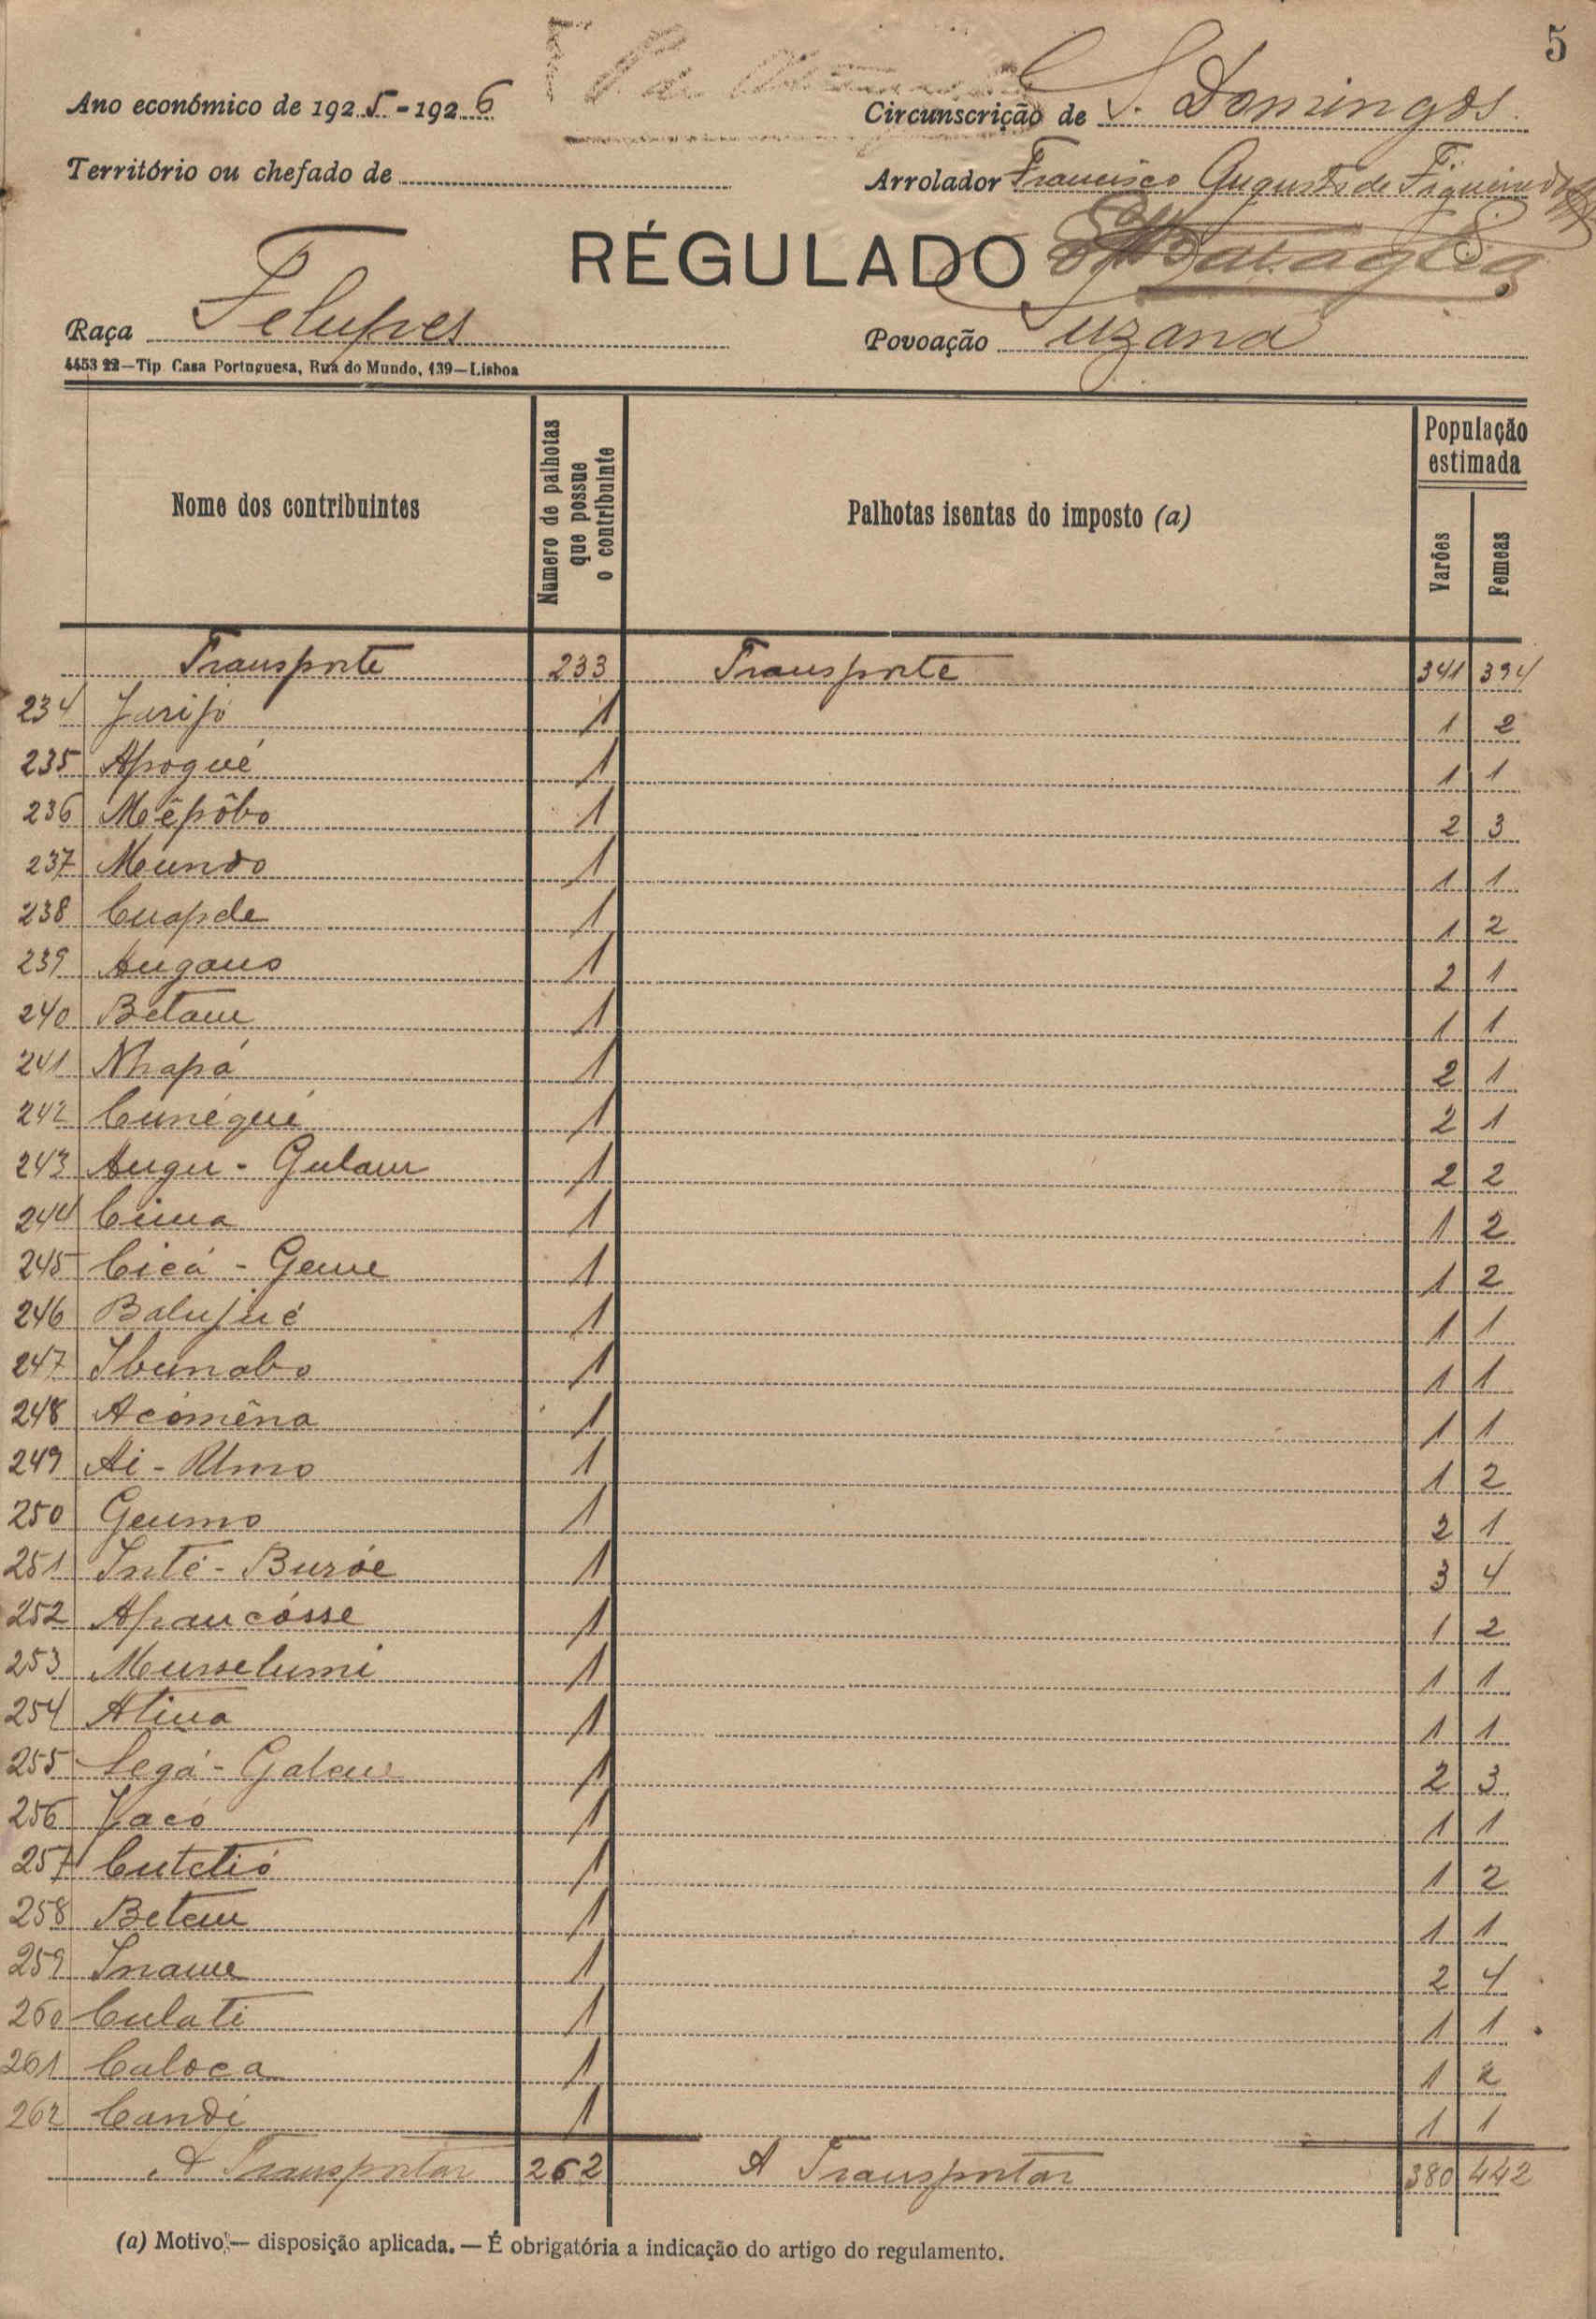 5
Ano económico de 1925-1926
Circunscrição de S. Domingos
Território ou chefado de
Arrolador Francisco Augusto de Figueiredo
RÉGULADO
Raça Felupes
Povoação Suzana
4453 22—Tip. Casa Portuguesa, Rua do Mundo, 139—Lisboa
Nome dos contribuintes
Número de palhotas que possue o contribuinte
Palhotas isentas do imposto (a)
População estimada
Varões
Femeas
Transporte 233 Transporte 341 394
234 Jarijó 1 1 2
235 Apogué 1 1 1
236 Mêpôbo 1 2 3
237 Mundo 1 1 1
238 Cuapde 1 1 2
239 Augaus 1 2 1
240 Betam 1 1 1
241 Nhapá 1 2 1
242 Cunégué 1 2 1
243 Augu - Gulam 1 2 2
244 Cima 1 1 2
245 Cicá - Geme 1 1 2
246 Balujué 1 1 1
247 Ibunabo 1 1 1
248 Acómêna 1 1 1
249 Ai - Umo 1 1 2
250 Geumo 1 2 1
251 Inté - Buróe 1 3 4
252 Apaucósse 1 1 2
253 Musselumi 1 1 1
254 Atiua 1 1 1
255 Segá - Galeu 1 2 3
256 Jacó 1 1 1
257 Cutetió 1 1 2
258 Betem 1 1 1
259 Iname 1 2 4
260 Culati 1 1 1
261 Caloca 1 1 2
262 Candi 1 1 1
A Transportar 262 A Transportar 380 442
(a) Motivo — disposição aplicada. — É obrigatória a indicação do artigo do regulamento.